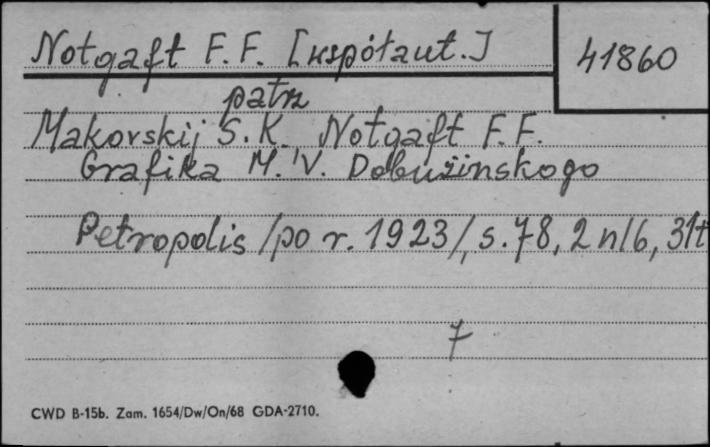 Notgaft F.F. [współaut.]
41860
patrz
Makovskij S.K. Notgaft F.F.
Grafika M. V. Dobużinskogo
Petropolis /po r. 1923/, s. 78, 2 nlb,
7
CWD B-15b. Zam. 1654/Dw/On/68 GDA-2710.